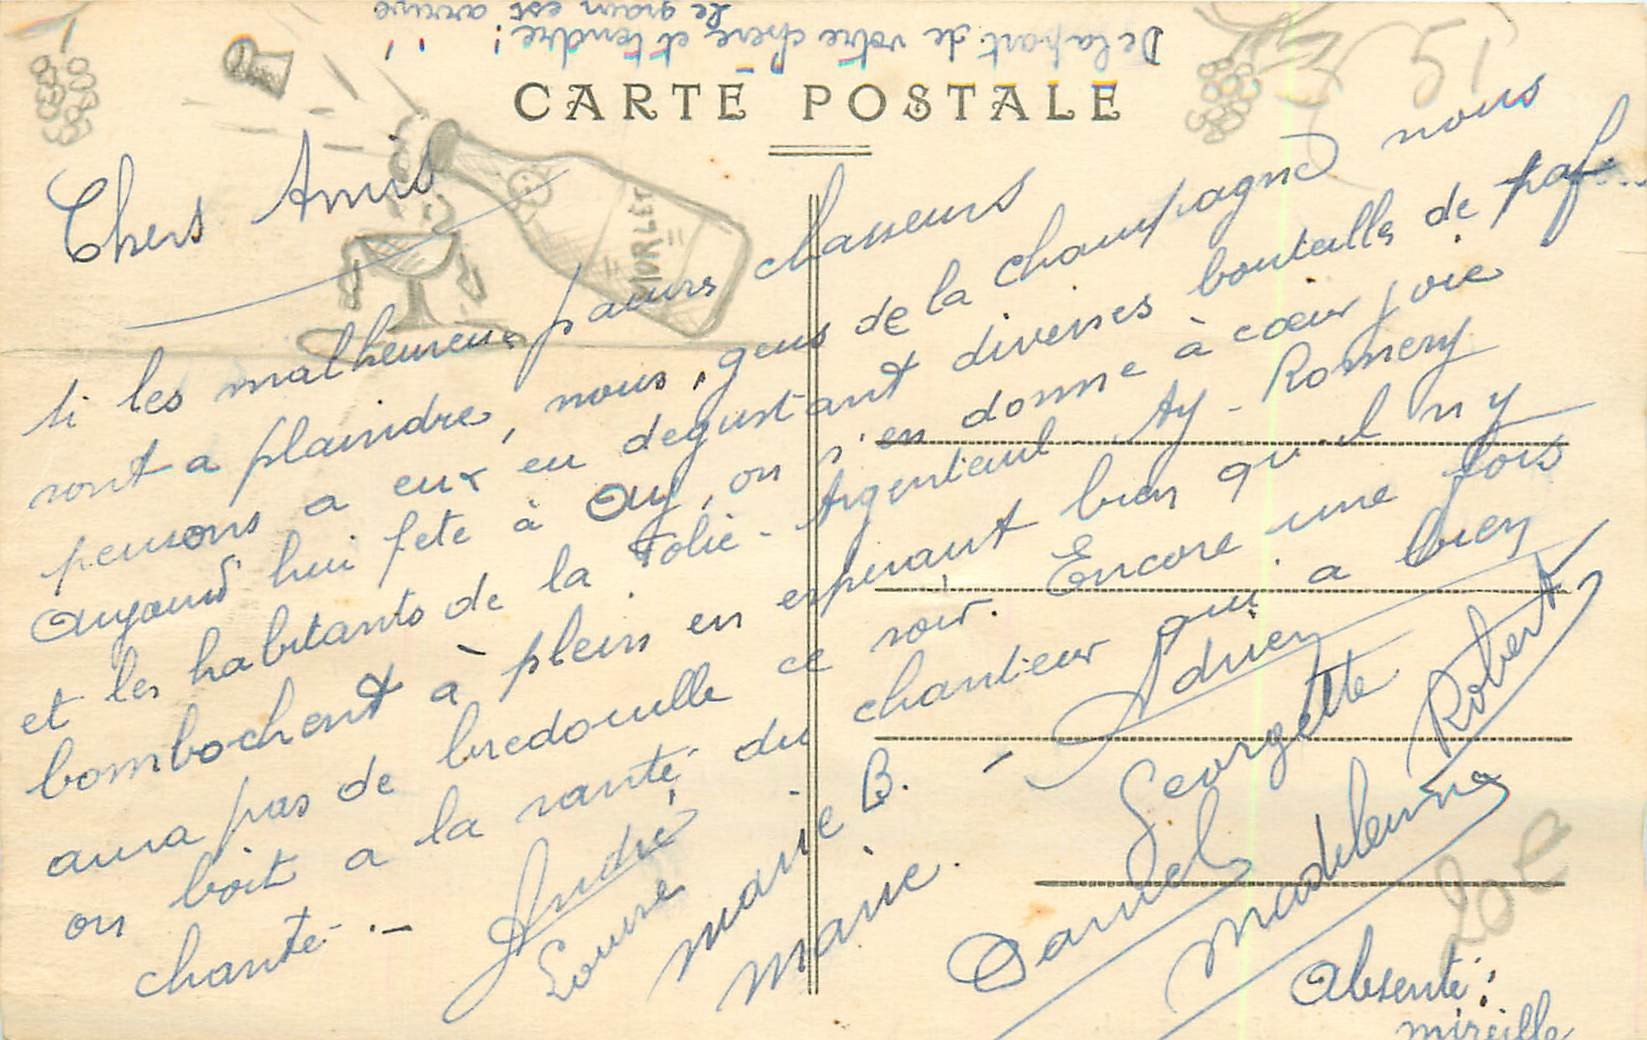 De la part de votre chère et tendre!
Le grain est arrivé
CARTE POSTALE
51
MORLET
Chers Amis
Si les malheureux pauvres chasseurs
sont a plaindre, nous, gens de la champagne nous
pensons a eux en degustant diverses bouteilles de paf...
Aujourd'hui fete à Ay, on s'en donne à cœur joie
et les habitants de la Folie - Argentieul - Ay - Romery
bombochent à plein en esperant bien qu'il n'y
aura pas de bredouille ce soir. Encore une fois
on boit a la santé du chantieur qui a bien
chanté. -
André
Louise
Marie B. -
Marie.
Adrien
Georgette
Robert
Daniel
Madeleine
Absente:
mireille
20E